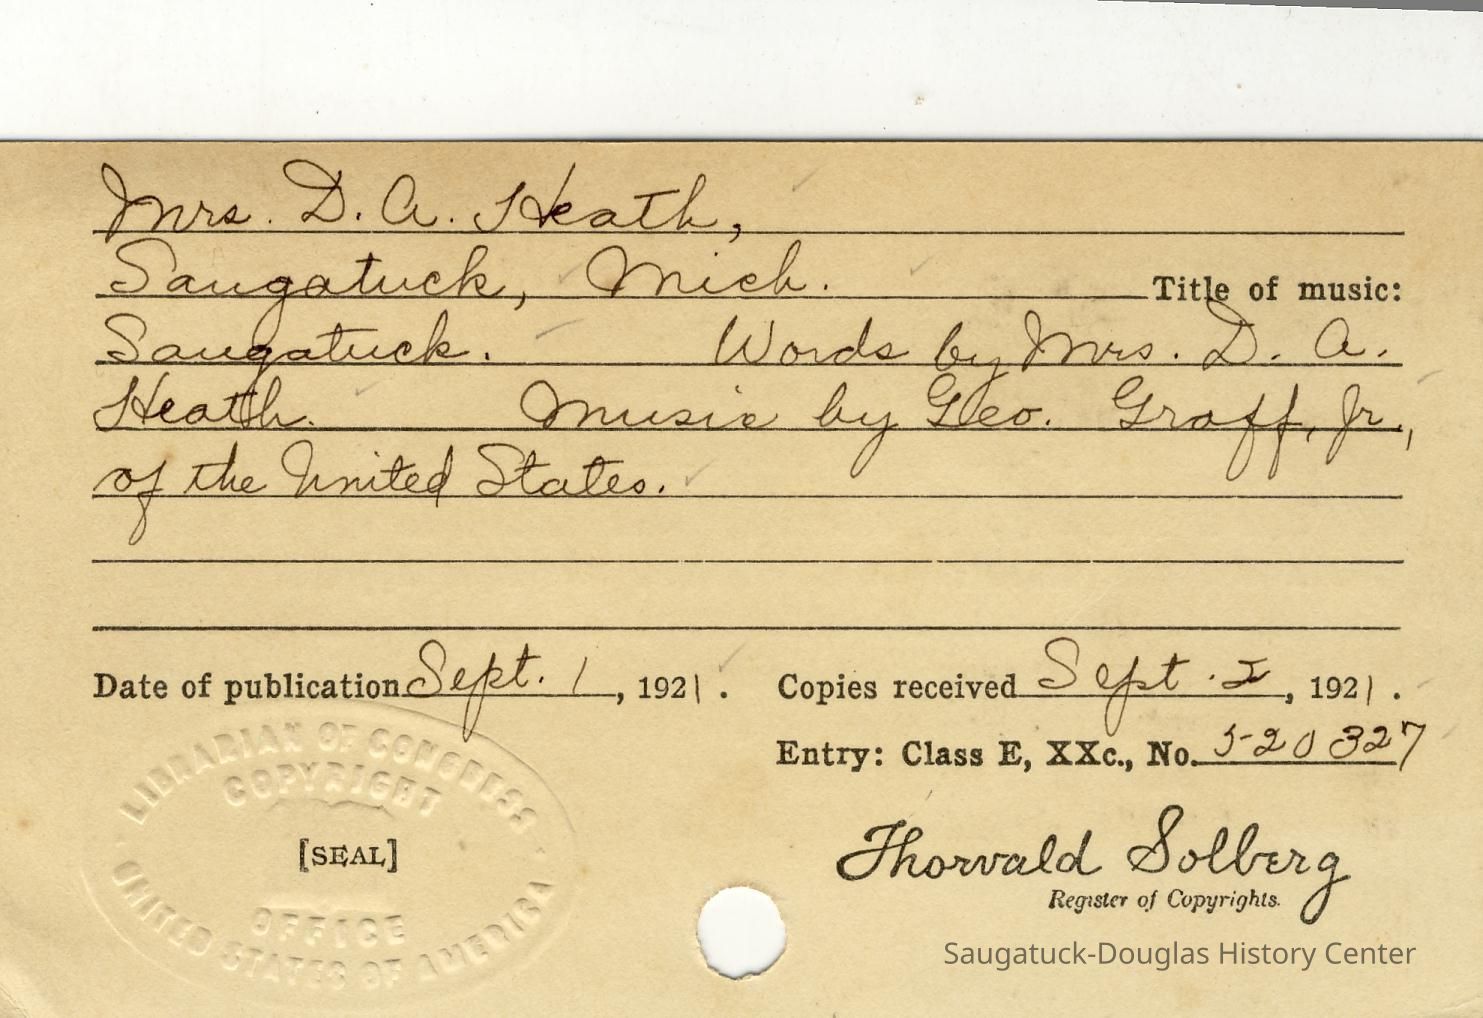 Mrs. D. A. Heath,
Saugatuck, Mich. Title of music:
Saugatuck. Words by Mrs. D. A.
Heath. Music by Geo. Graff, Jr.,
of the United States.
Date of publication Sept. 1, 1921. Copies received Sept. 2, 1921.
Entry: Class E, XXc., No. 520327
LIBRARIAN OF CONGRESS
COPYRIGHT
[SEAL]
OFFICE
UNITED STATES OF AMERICA
Thorvald Solberg
Register of Copyrights.
Saugatuck-Douglas History Center